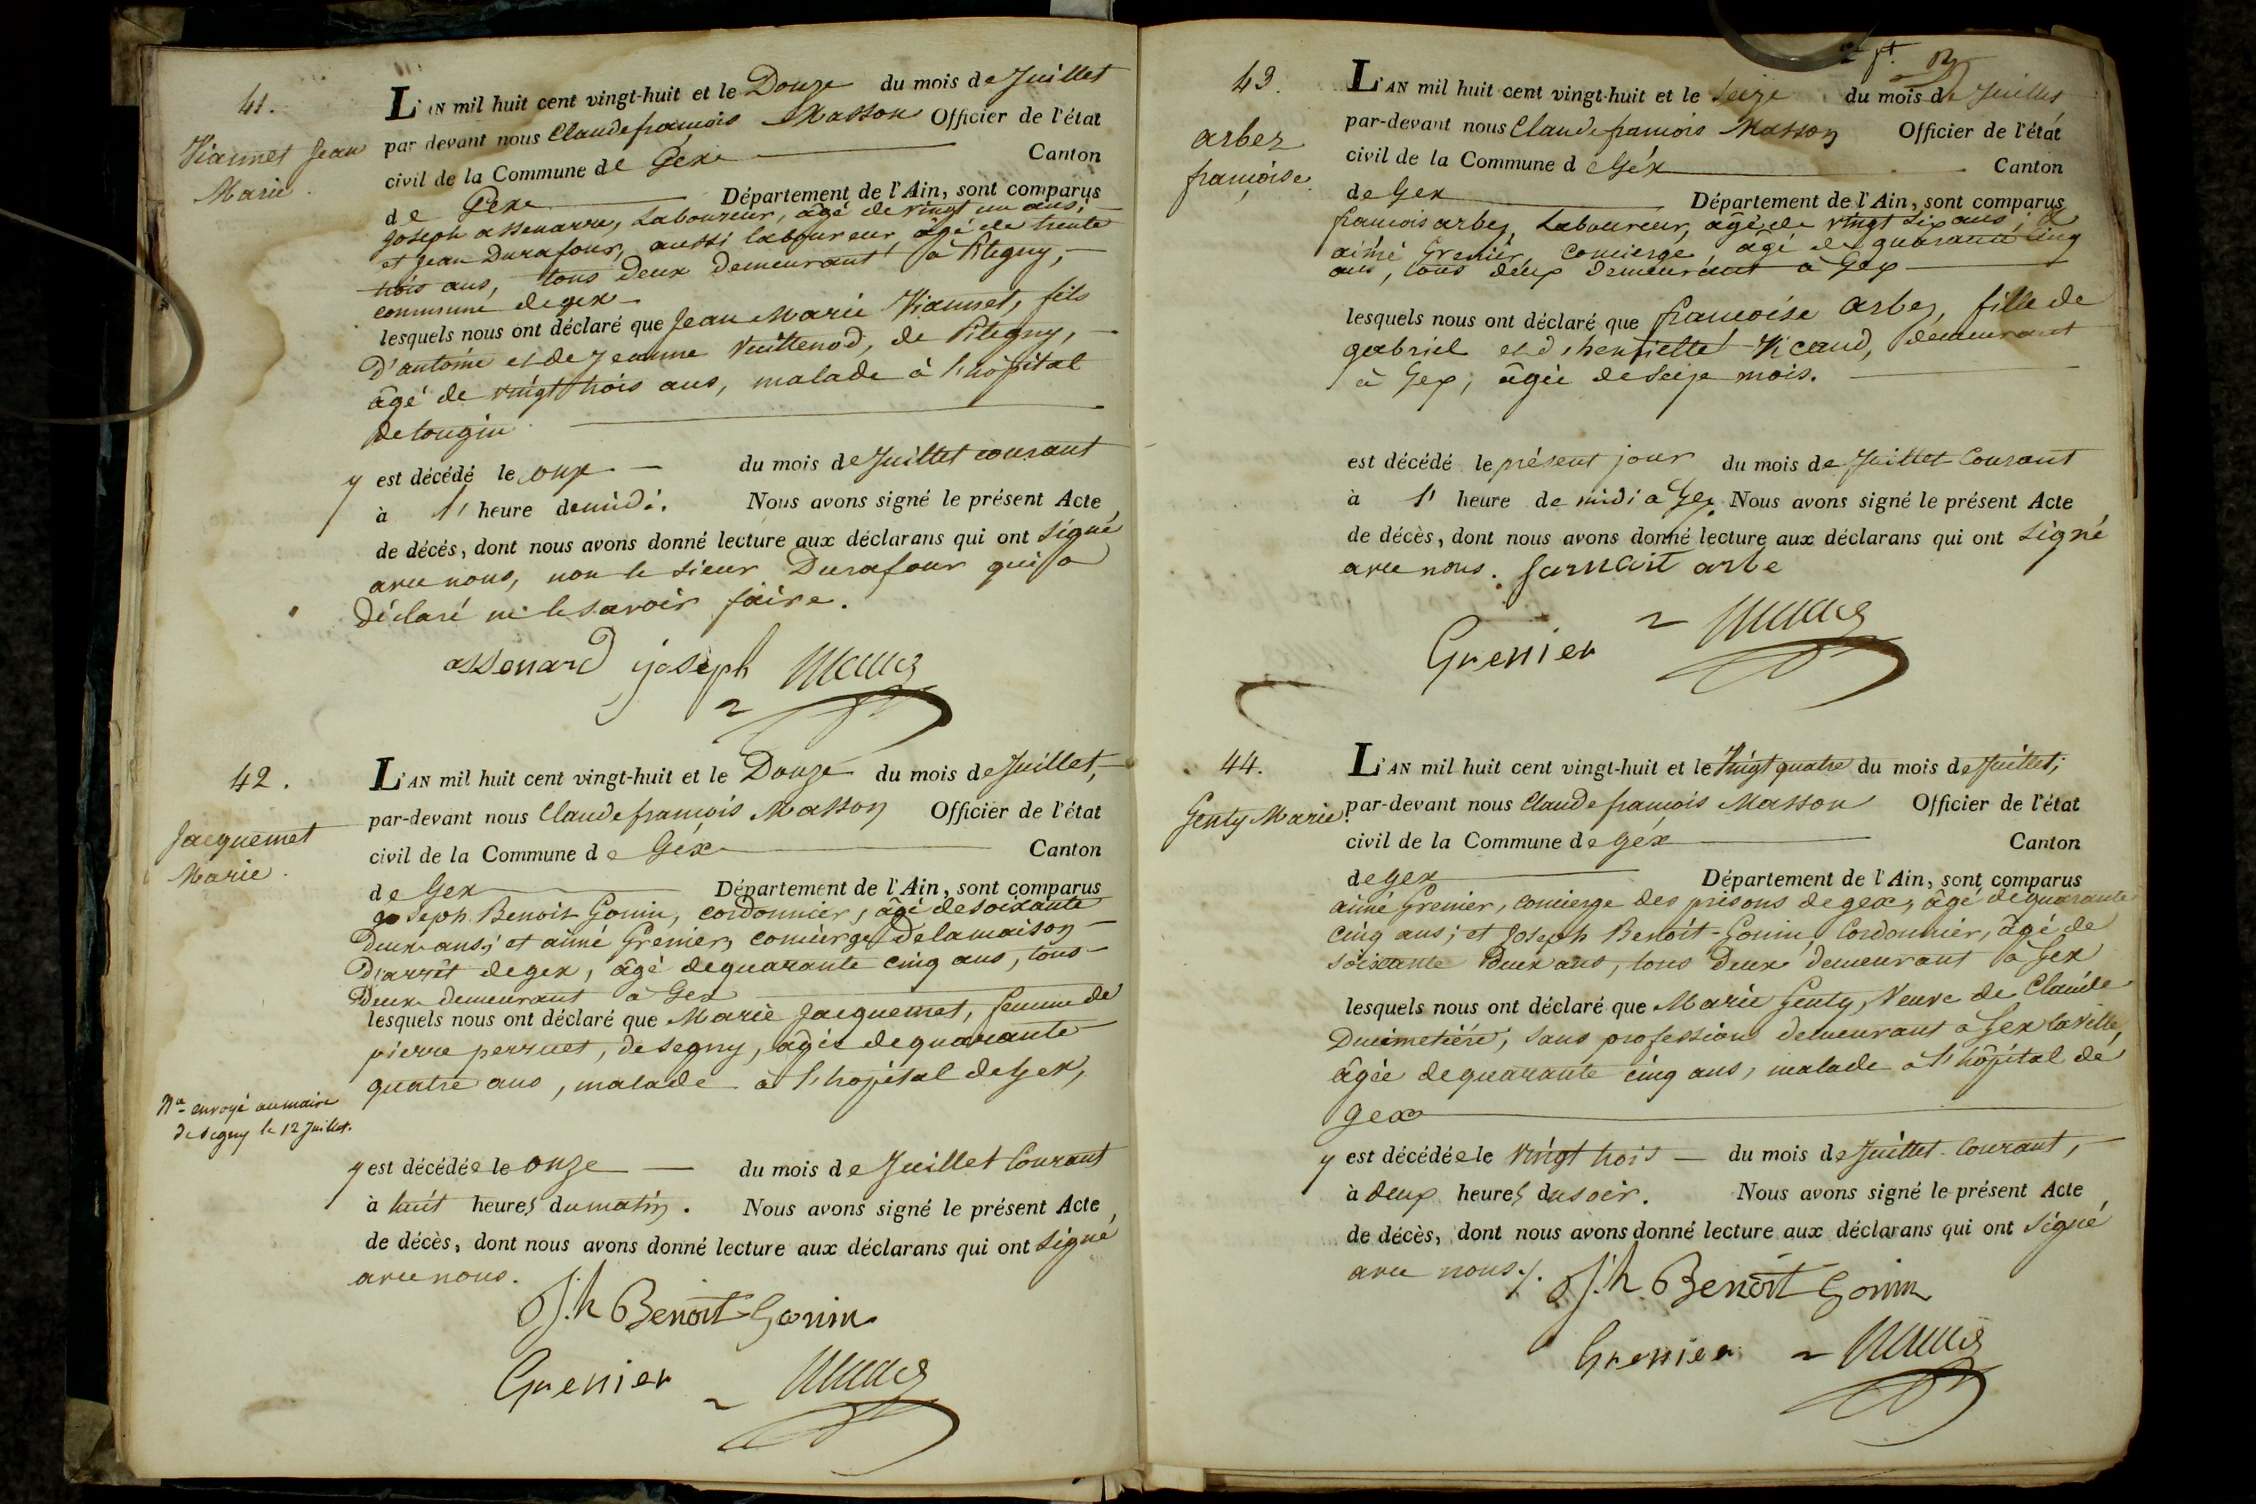 41.
Viannet Jean
Marie.
L'AN mil huit cent vingt-huit et le Douze du mois de Juillet
par devant nous Claude françois Masson Officier de l'état
civil de la Commune de Gex Canton
de Gex Département de l'Ain, sont comparus
Joseph assenarre, Laboureur, âgé de vingt un ans;
et jean Durafour, aussi laboureur âgé de trente
trois ans, tous deux demeurant à Pitegny,
commune de gex
lesquels nous ont déclaré que Jean Marie Viannet, fils
D'antoine et de jeanne Vuittenod, de Pitegny,
âgé de vingt trois ans, malade à l'hôpital
de tougin
y est décédé le onze du mois de Juillet courant
à 1' heure de midi. Nous avons signé le présent Acte
de décés, dont nous avons donné lecture aux déclarans qui ont signé
avec nous, non le sieur Durafour qui a
déclaré ne le savoir faire.
assenard joseph
42.
Jacquemet
Marie.
L'AN mil huit cent vingt-huit et le Douze du mois de Juillet,
par-devant nous Claude françois Masson Officier de l'état
civil de la Commune de Géx Canton
de Gex Département de l'Ain, sont comparus
joseph Benoit Gonin, cordonnier, âgé de soixante
Deux ans; et aimé Grenier, concierge de la maison
D'arrêt de gex, âgé de quarante cinq ans, tous
Deux demeurant à Gex
lesquels nous ont déclaré que Marie Jacquemet, femme de
pierre perruet, de segny, âgée de quarante
quatre ans, malade à l'hopital de Gex,
Nª envoyé au maire
de segny le 12 Juillet.
y est décédée le onze du mois de Juillet Courant
à huit heures du matin. Nous avons signé le présent Acte
de décès, dont nous avons donné lecture aux déclarans qui ont signé
avec nous.
J.h Benoit Gonin
Grenier
43.
arbez
françoise.
L'AN mil huit cent vingt-huit et le Seize du mois de Juillet
par-devant nous Claude françois Masson Officier de l'état
civil de la Commune de Géx Canton
de Gex Département de l'Ain, sont comparus
francois arbez, Laboureur, âgé de vingt six ans; et
aimé Grenier, concierge, âgé de quarante cinq
ans, tous deux demeurant à Gex
lesquels nous ont déclaré que francoise arbez, fille de
gabriel et d'henriette Vicaud, demeurant
à Gex, âgée de seize mois.
est décédé le présent jour du mois de Juillet Courant
à 1' heure de midi a Gex. Nous avons signé le présent Acte
de décès, dont nous avons donné lecture aux déclarans qui ont signé
avec nous. arbe
Grenier
44.
Genty Marie.
L'AN mil huit cent vingt-huit et le Vingt quatre du mois de Juillet;
par-devant nous Claude françois Masson Officier de l'état
civil de la Commune de géx Canton
de gex Département de l'Ain, sont comparus
aimé Grenier, concierge des prisons de gex, âgé de quarante
cinq ans; et Joseph Benoit-Gonin, Cordonnier, âgé de
soixante Deux ans, tous Deux demeurant à Gex
lesquels nous ont déclaré que Marie Genty, Veuve de Claude
Ducimetière, sans profession demeurant à Gex la ville,
âgée de quarante cinq ans, malade à l'hôpital de
gex
y est décédée le vingt trois du mois de Juillet Courant,
à deux heures du soir. Nous avons signé le présent Acte
de décès, dont nous avons donné lecture aux déclarans qui ont signé
avec nous./.
J.h Benoit Gonin
Grenier